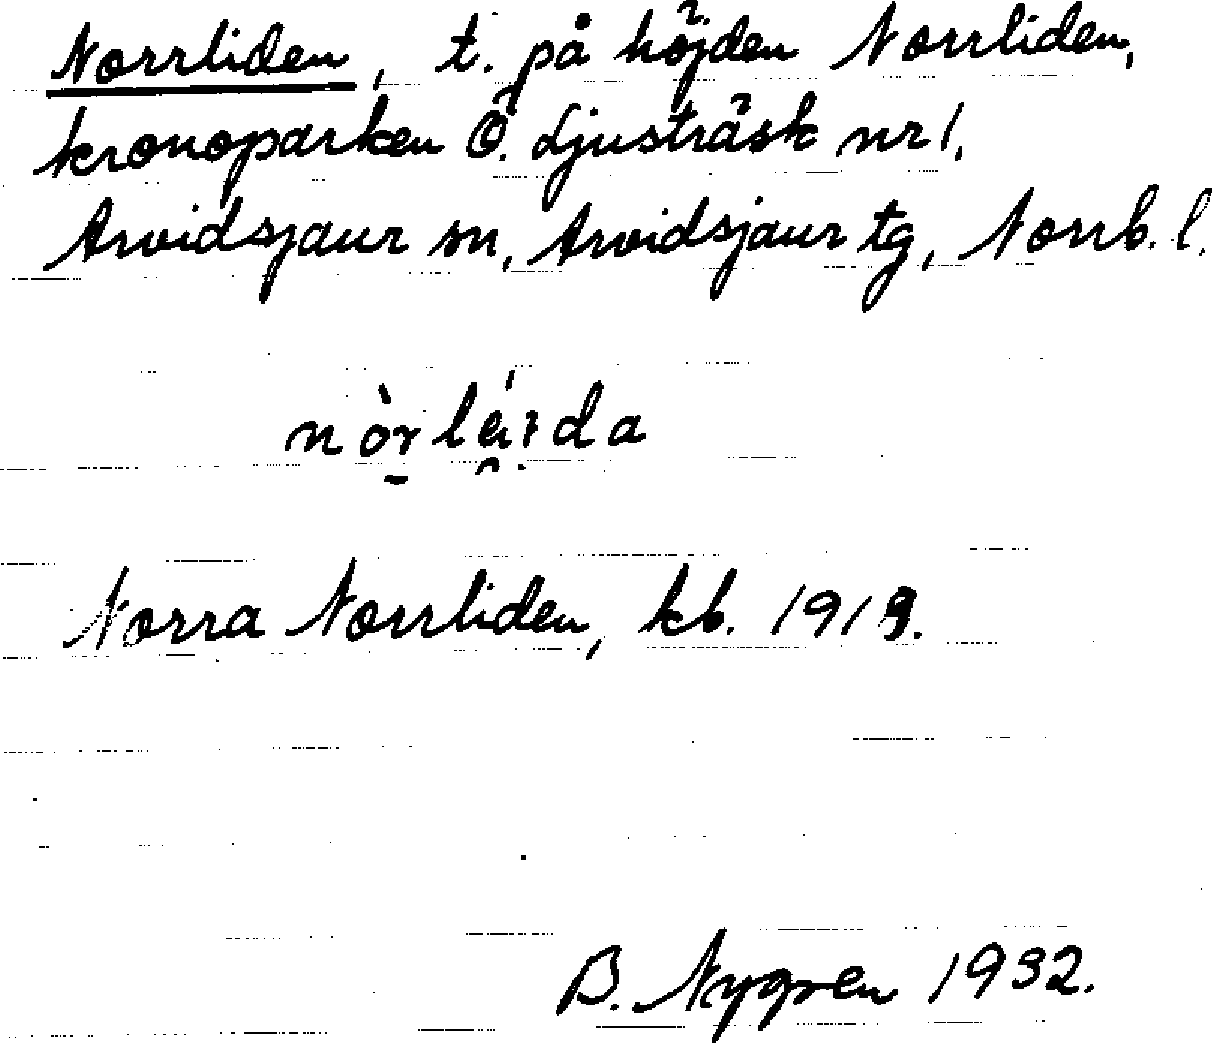 Norrliden, t. på höjden Norrliden,
kronoparken Ö. Ljusträsk nr 1,
Arvidsjaur sn, Arvidsjaur tg, Norrb. l.
nòrlái̯da
Norra Norrliden, kb. 1919.
B. Nygren 1932.